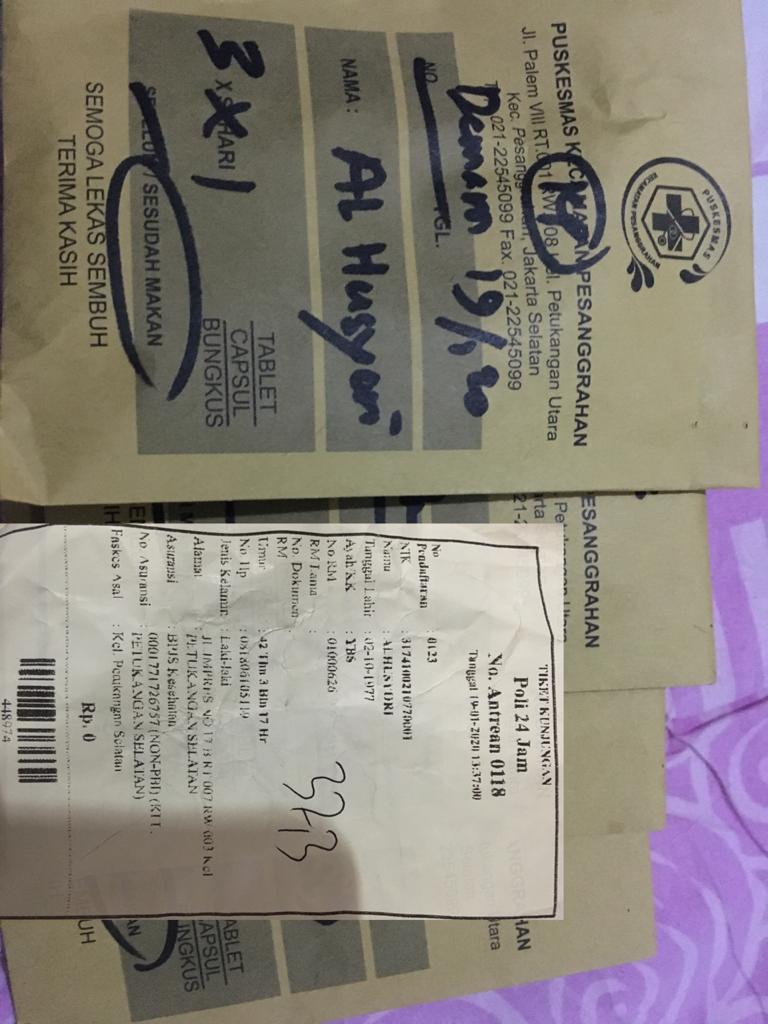 PUSKESMAS
KECAMATAN PESANGGRAHAN
PUSKESMAS KECAMATAN PESANGGRAHAN
Jl. Palem VIII RT.001 RW 08 Kel. Petukangan Utara
Kec. Pesanggrahan, Jakarta Selatan
021-22545099 Fax. 021-22545099
NO. TGL.
Demam 19/1 20
NAMA : AL Husyari
3 X SHARI 1
TABLET
CAPSUL
BUNGKUS
SESUDAH MAKAN
SEMOGA LEKAS SEMBUH
TERIMA KASIH
ESANGGRAHAN
Petukangan Utara
TIKET KUNJUNGAN
Poli 24 Jam
No. Antrean 0118
Tanggal 19-01-2020 13:37:00
No Pendaftaran : 0123
NIK
Nama
Tanggal Lahir : 02-10-1977
Ayah/KK : YBS
No RM : 01000626
RM Lama :
No. Dokumen RM :
Umur : 42 Thn 3 Bln 17 Hr
No. Hp
Jenis Kelamin : Laki-laki
Alamat : JL IMPRES NO 17 B RT 007 RW 003 Kel
PETUKANGAN SELATAN
Asuransi : BPJS Kesehatan
No. Asuransi : 0001771726757 (NON-PBI) (KEL.
PETUKANGAN SELATAN)
Faskes Asal : Kel. Petukangan Selatan
Rp. 0
448974
ABLET
APSUL
NGKUS